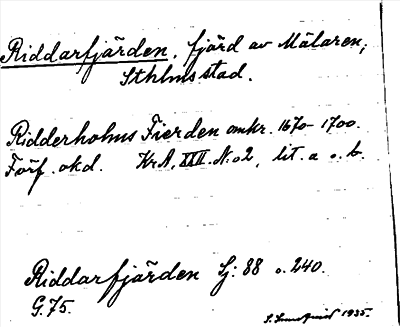 Riddarfjärden, fjärd av Mälaren,
Sthlms stad.
Ridderholms Fierden omkr. 1670-1700.
Förf. okd. KrA, XXII. N:o 2, lit. a o. b.
Riddarfjärden Sj: 88 o. 240.
G. 75.
S. Lundqvist 1935.